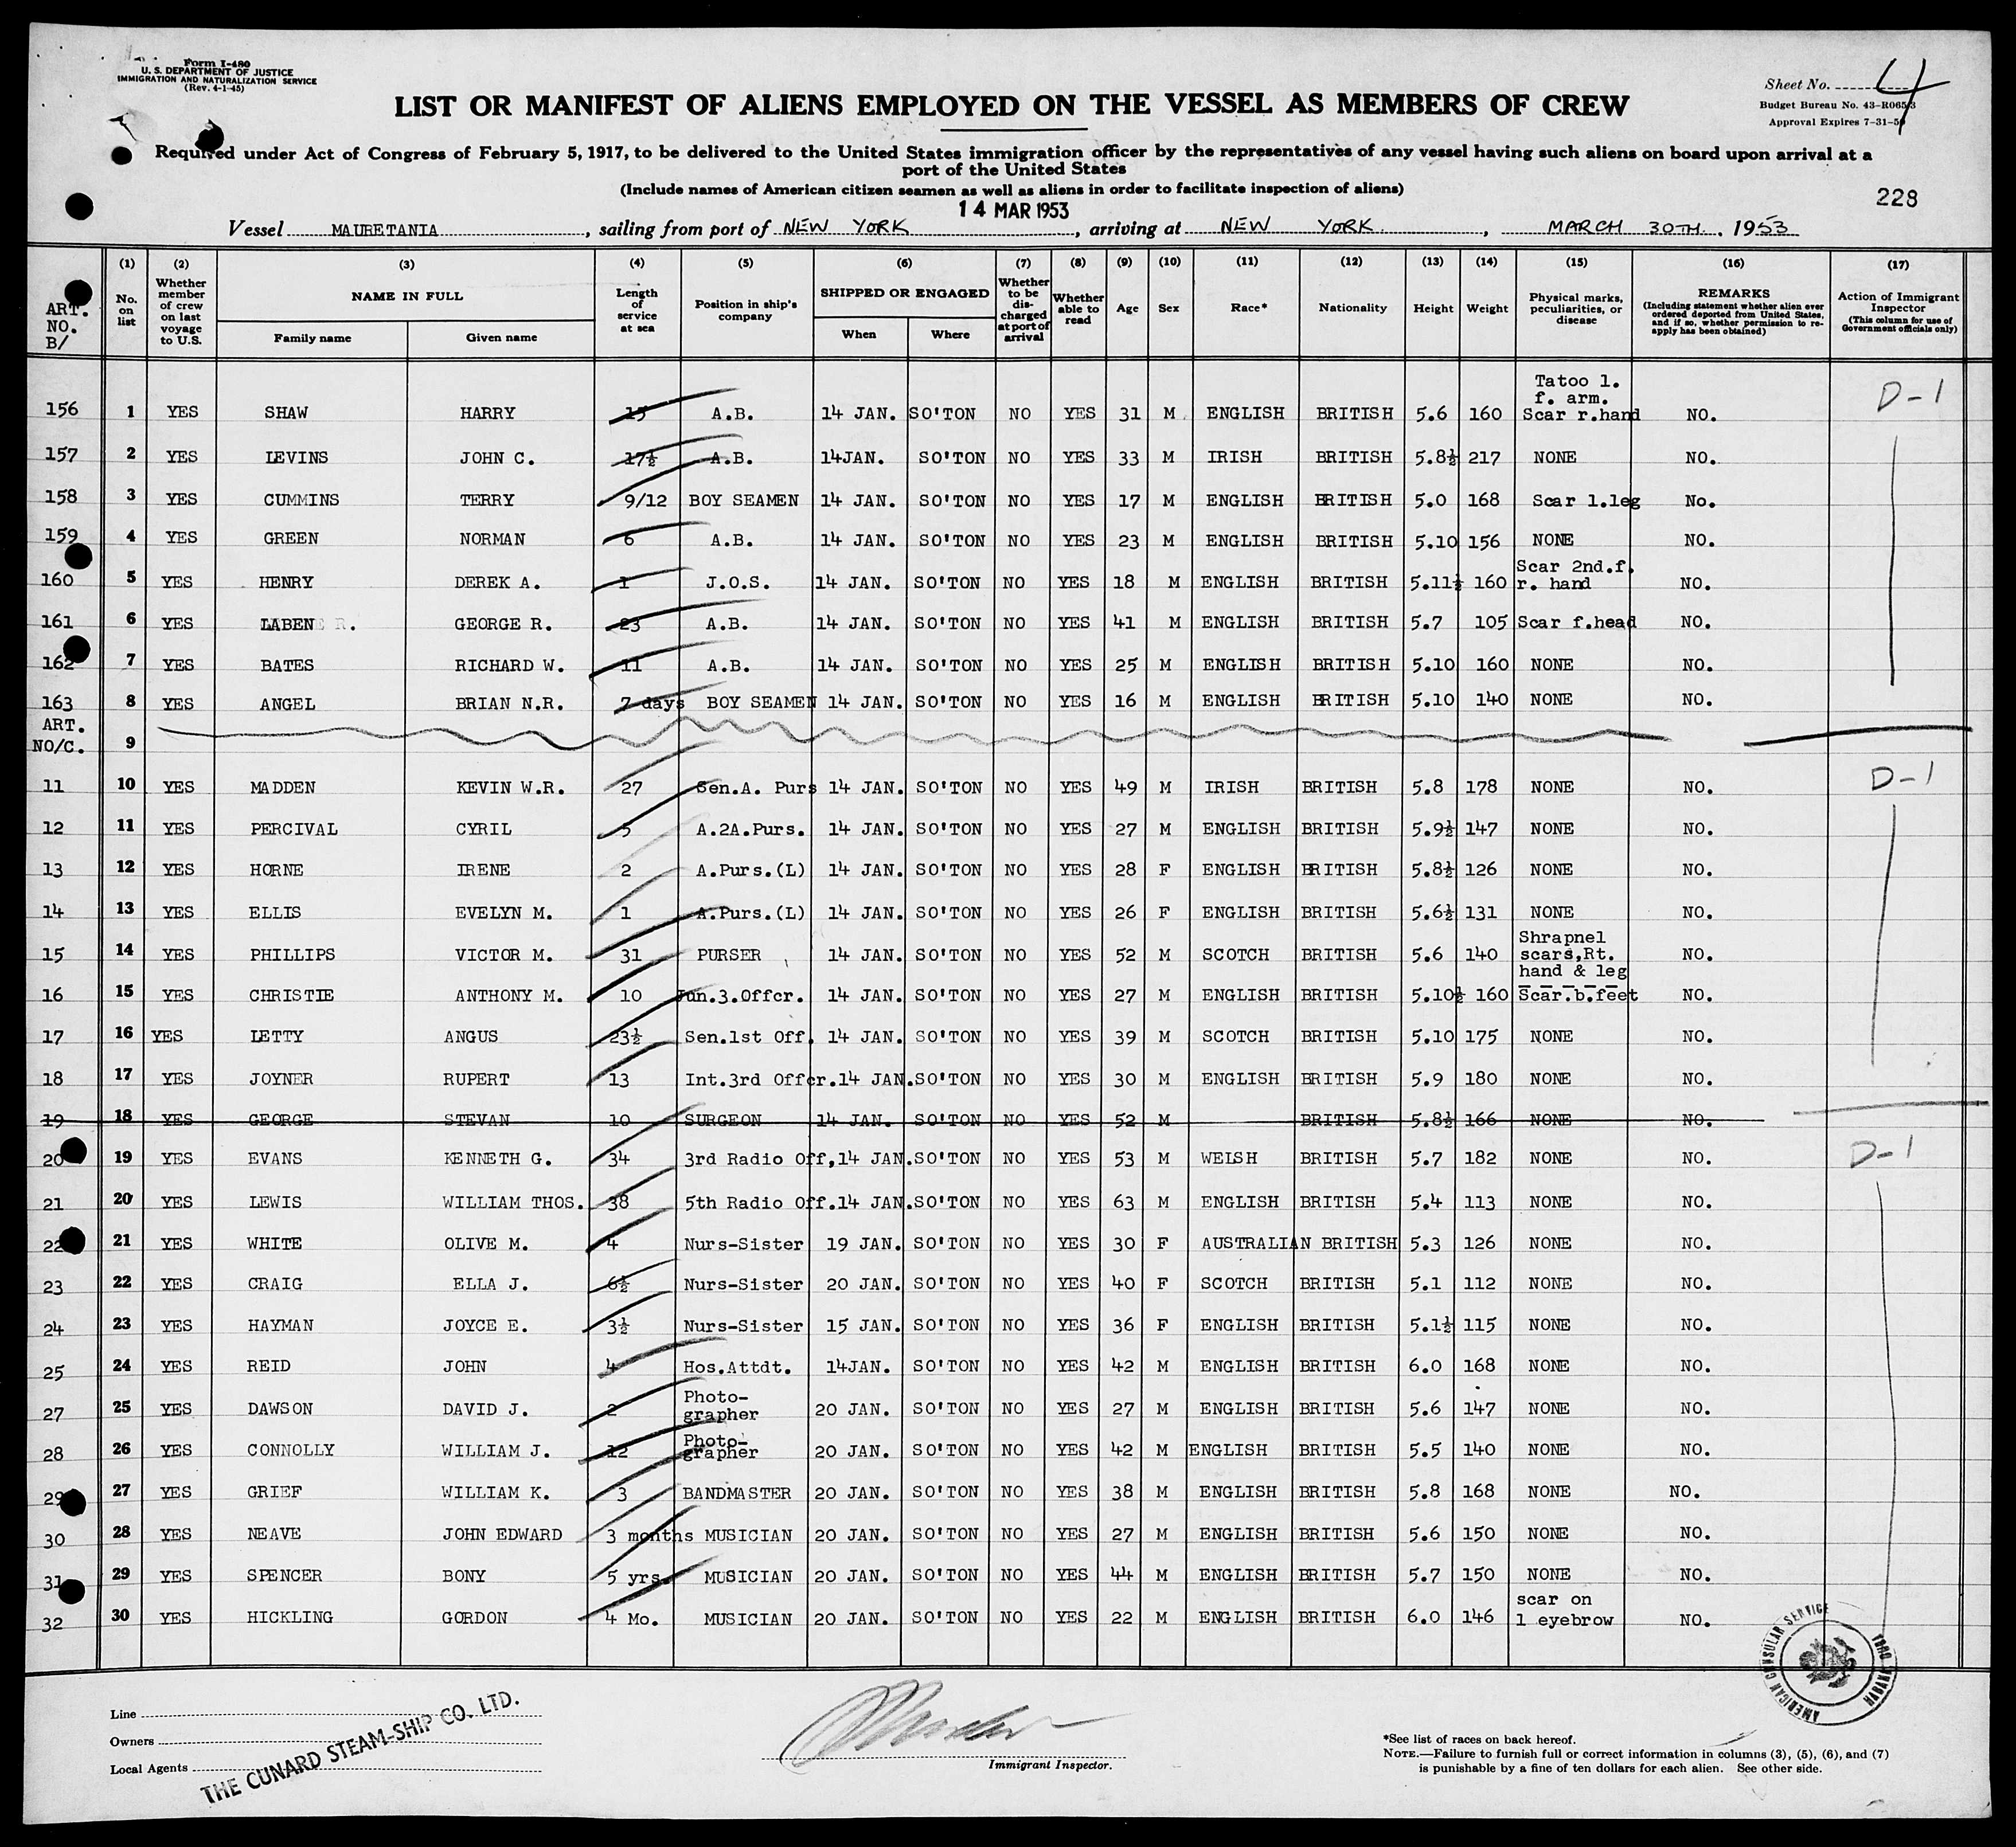 Form I-480
U. S. DEPARTMENT OF JUSTICE
IMMIGRATION AND NATURALIZATION SERVICE
(Rev. 4-1-45)
Sheet No. 4
Budget Bureau No. 43-R065.3
Approval Expires 7-31-50
LIST OR MANIFEST OF ALIENS EMPLOYED ON THE VESSEL AS MEMBERS OF CREW
Required under Act of Congress of February 5, 1917, to be delivered to the United States immigration officer by the representatives of any vessel having such aliens on board upon arrival at a
port of the United States
(Include names of American citizen seamen as well as aliens in order to facilitate inspection of aliens)
14 MAR 1953
228
Vessel MAURETANIA, sailing from port of NEW YORK, arriving at NEW YORK, MARCH 30TH, 1953
ART. NO. B/ (1) No. on list (2) Whether member of crew on last voyage to U.S. (3) NAME IN FULL Family name Given name (4) Length of service at sea (5) Position in ship's company (6) SHIPPED OR ENGAGED When Where (7) Whether to be discharged at port of arrival (8) Whether able to read (9) Age (10) Sex (11) Race* (12) Nationality (13) Height (14) Weight (15) Physical marks, peculiarities, or disease (16) REMARKS (Including statement whether alien ever ordered deported from United States, and if so, whether permission to reapply has been obtained) (17) Action of Immigrant Inspector (This column for use of Government officials only)
156 1 YES SHAW HARRY 15 A.B. 14 JAN. SO'TON NO YES 31 M ENGLISH BRITISH 5.6 160 Tatoo l. f. arm. Scar r.hand NO. D-1
157 2 YES LEVINS JOHN C. 17½ A.B. 14JAN. SO'TON NO YES 33 M IRISH BRITISH 5.8½ 217 NONE NO.
158 3 YES CUMMINS TERRY 9/12 BOY SEAMEN 14 JAN. SO'TON NO YES 17 M ENGLISH BRITISH 5.0 168 Scar l.leg No.
159 4 YES GREEN NORMAN 6 A.B. 14 JAN. SO'TON NO YES 23 M ENGLISH BRITISH 5.10 156 NONE NO.
160 5 YES HENRY DEREK A. 1 J.O.S. 14 JAN. SO'TON NO YES 18 M ENGLISH BRITISH 5.11½ 160 Scar 2nd.f. r. hand NO.
161 6 YES LABEN GEORGE R. 23 A.B. 14 JAN. SO'TON NO YES 41 M ENGLISH BRITISH 5.7 105 Scar f.head NO.
162 7 YES BATES RICHARD W. 11 A.B. 14 JAN. SO'TON NO YES 25 M ENGLISH BRITISH 5.10 160 NONE NO.
163 8 YES ANGEL BRIAN N.R. 7 days BOY SEAMEN 14 JAN. SO'TON NO YES 16 M ENGLISH BRITISH 5.10 140 NONE NO.
ART. NO/C. 9
11 10 YES MADDEN KEVIN W.R. 27 Sen.A. Purs 14 JAN. SO'TON NO YES 49 M IRISH BRITISH 5.8 178 NONE NO. D-1
12 11 YES PERCIVAL CYRIL 5 A.2A.Purs. 14 JAN. SO'TON NO YES 27 M ENGLISH BRITISH 5.9½ 147 NONE NO.
13 12 YES HORNE IRENE 2 A.Purs.(L) 14 JAN. SO'TON NO YES 28 F ENGLISH BRITISH 5.8½ 126 NONE NO.
14 13 YES ELLIS EVELYN M. 1 A.Purs.(L) 14 JAN. SO'TON NO YES 26 F ENGLISH BRITISH 5.6½ 131 NONE NO.
15 14 YES PHILLIPS VICTOR M. 31 PURSER 14 JAN. SO'TON NO YES 52 M SCOTCH BRITISH 5.6 140 Shrapnel scars,Rt. hand & leg NO.
16 15 YES CHRISTIE ANTHONY M. 10 Jun.3.Offcr. 14 JAN. SO'TON NO YES 27 M ENGLISH BRITISH 5.10½ 160 Scar.b.feet NO.
17 16 YES LETTY ANGUS 23½ Sen.1st Off. 14 JAN. SO'TON NO YES 39 M SCOTCH BRITISH 5.10 175 NONE NO.
18 17 YES JOYNER RUPERT 13 Int.3rd Offcr. 14 JAN. SO'TON NO YES 30 M ENGLISH BRITISH 5.9 180 NONE NO.
19 18 YES GEORGE STEVAN 10 SURGEON 14 JAN. SO'TON NO YES 52 M BRITISH 5.8½ 166 NONE NO.
20 19 YES EVANS KENNETH G. 34 3rd Radio Off, 14 JAN. SO'TON NO YES 53 M WELSH BRITISH 5.7 182 NONE NO. D-1
21 20 YES LEWIS WILLIAM THOS. 38 5th Radio Off. 14 JAN. SO'TON NO YES 63 M ENGLISH BRITISH 5.4 113 NONE NO.
22 21 YES WHITE OLIVE M. 4 Nurs-Sister 19 JAN. SO'TON NO YES 30 F AUSTRALIAN BRITISH 5.3 126 NONE NO.
23 22 YES CRAIG ELLA J. 6½ Nurs-Sister 20 JAN. SO'TON NO YES 40 F SCOTCH BRITISH 5.1 112 NONE NO.
24 23 YES HAYMAN JOYCE E. 3½ Nurs-Sister 15 JAN. SO'TON NO YES 36 F ENGLISH BRITISH 5.1½ 115 NONE NO.
25 24 YES REID JOHN 4 Hos.Attdt. 14JAN. SO'TON NO YES 42 M ENGLISH BRITISH 6.0 168 NONE NO.
27 25 YES DAWSON DAVID J. 2 Photo-grapher 20 JAN. SO'TON NO YES 27 M ENGLISH BRITISH 5.6 147 NONE NO.
28 26 YES CONNOLLY WILLIAM J. 12 Photo-grapher 20 JAN. SO'TON NO YES 42 M ENGLISH BRITISH 5.5 140 NONE NO.
29 27 YES GRIEF WILLIAM K. 3 BANDMASTER 20 JAN. SO'TON NO YES 38 M ENGLISH BRITISH 5.8 168 NONE NO.
30 28 YES NEAVE JOHN EDWARD 3 months MUSICIAN 20 JAN. SO'TON NO YES 27 M ENGLISH BRITISH 5.6 150 NONE NO.
31 29 YES SPENCER BONY 5 yrs. MUSICIAN 20 JAN. SO'TON NO YES 44 M ENGLISH BRITISH 5.7 150 NONE NO.
32 30 YES HICKLING GORDON 4 Mo. MUSICIAN 20 JAN. SO'TON NO YES 22 M ENGLISH BRITISH 6.0 146 scar on l eyebrow NO.
AMERICAN CONSULAR SERVICE HABANA CUBA
Line
Owners
Local Agents
THE CUNARD STEAM-SHIP CO. LTD.
Immigrant Inspector.
*See list of races on back hereof.
NOTE.—Failure to furnish full or correct information in columns (3), (5), (6), and (7)
is punishable by a fine of ten dollars for each alien. See other side.